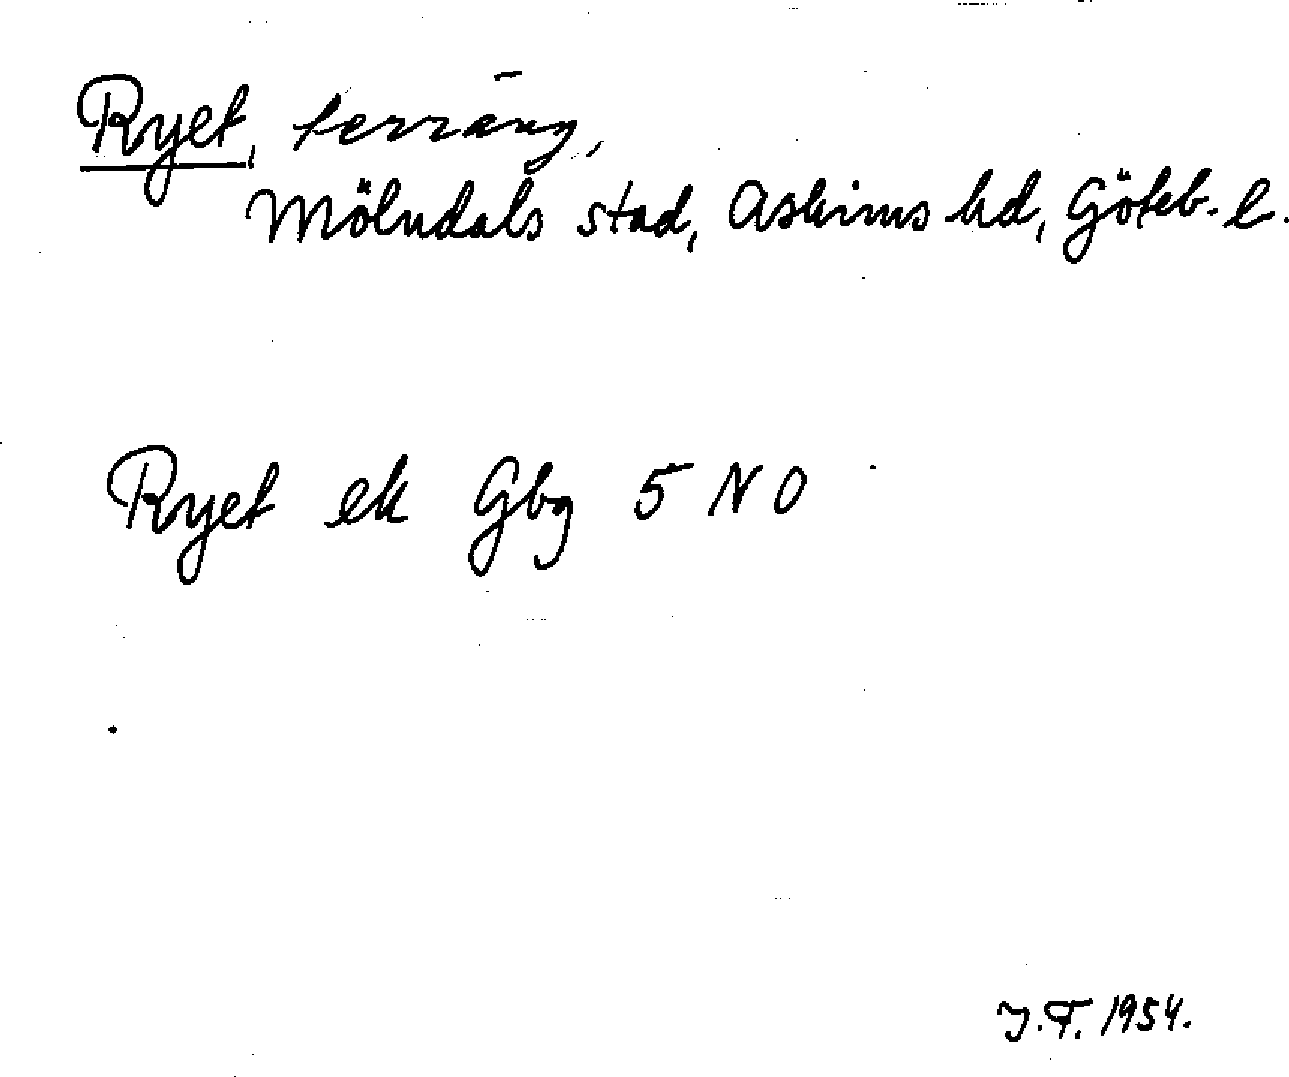 Ryet, terräng,
Mölndals stad, Askims hd, Göteb. l.
Ryet ek Gbg 5 NO
J.F. 1954.